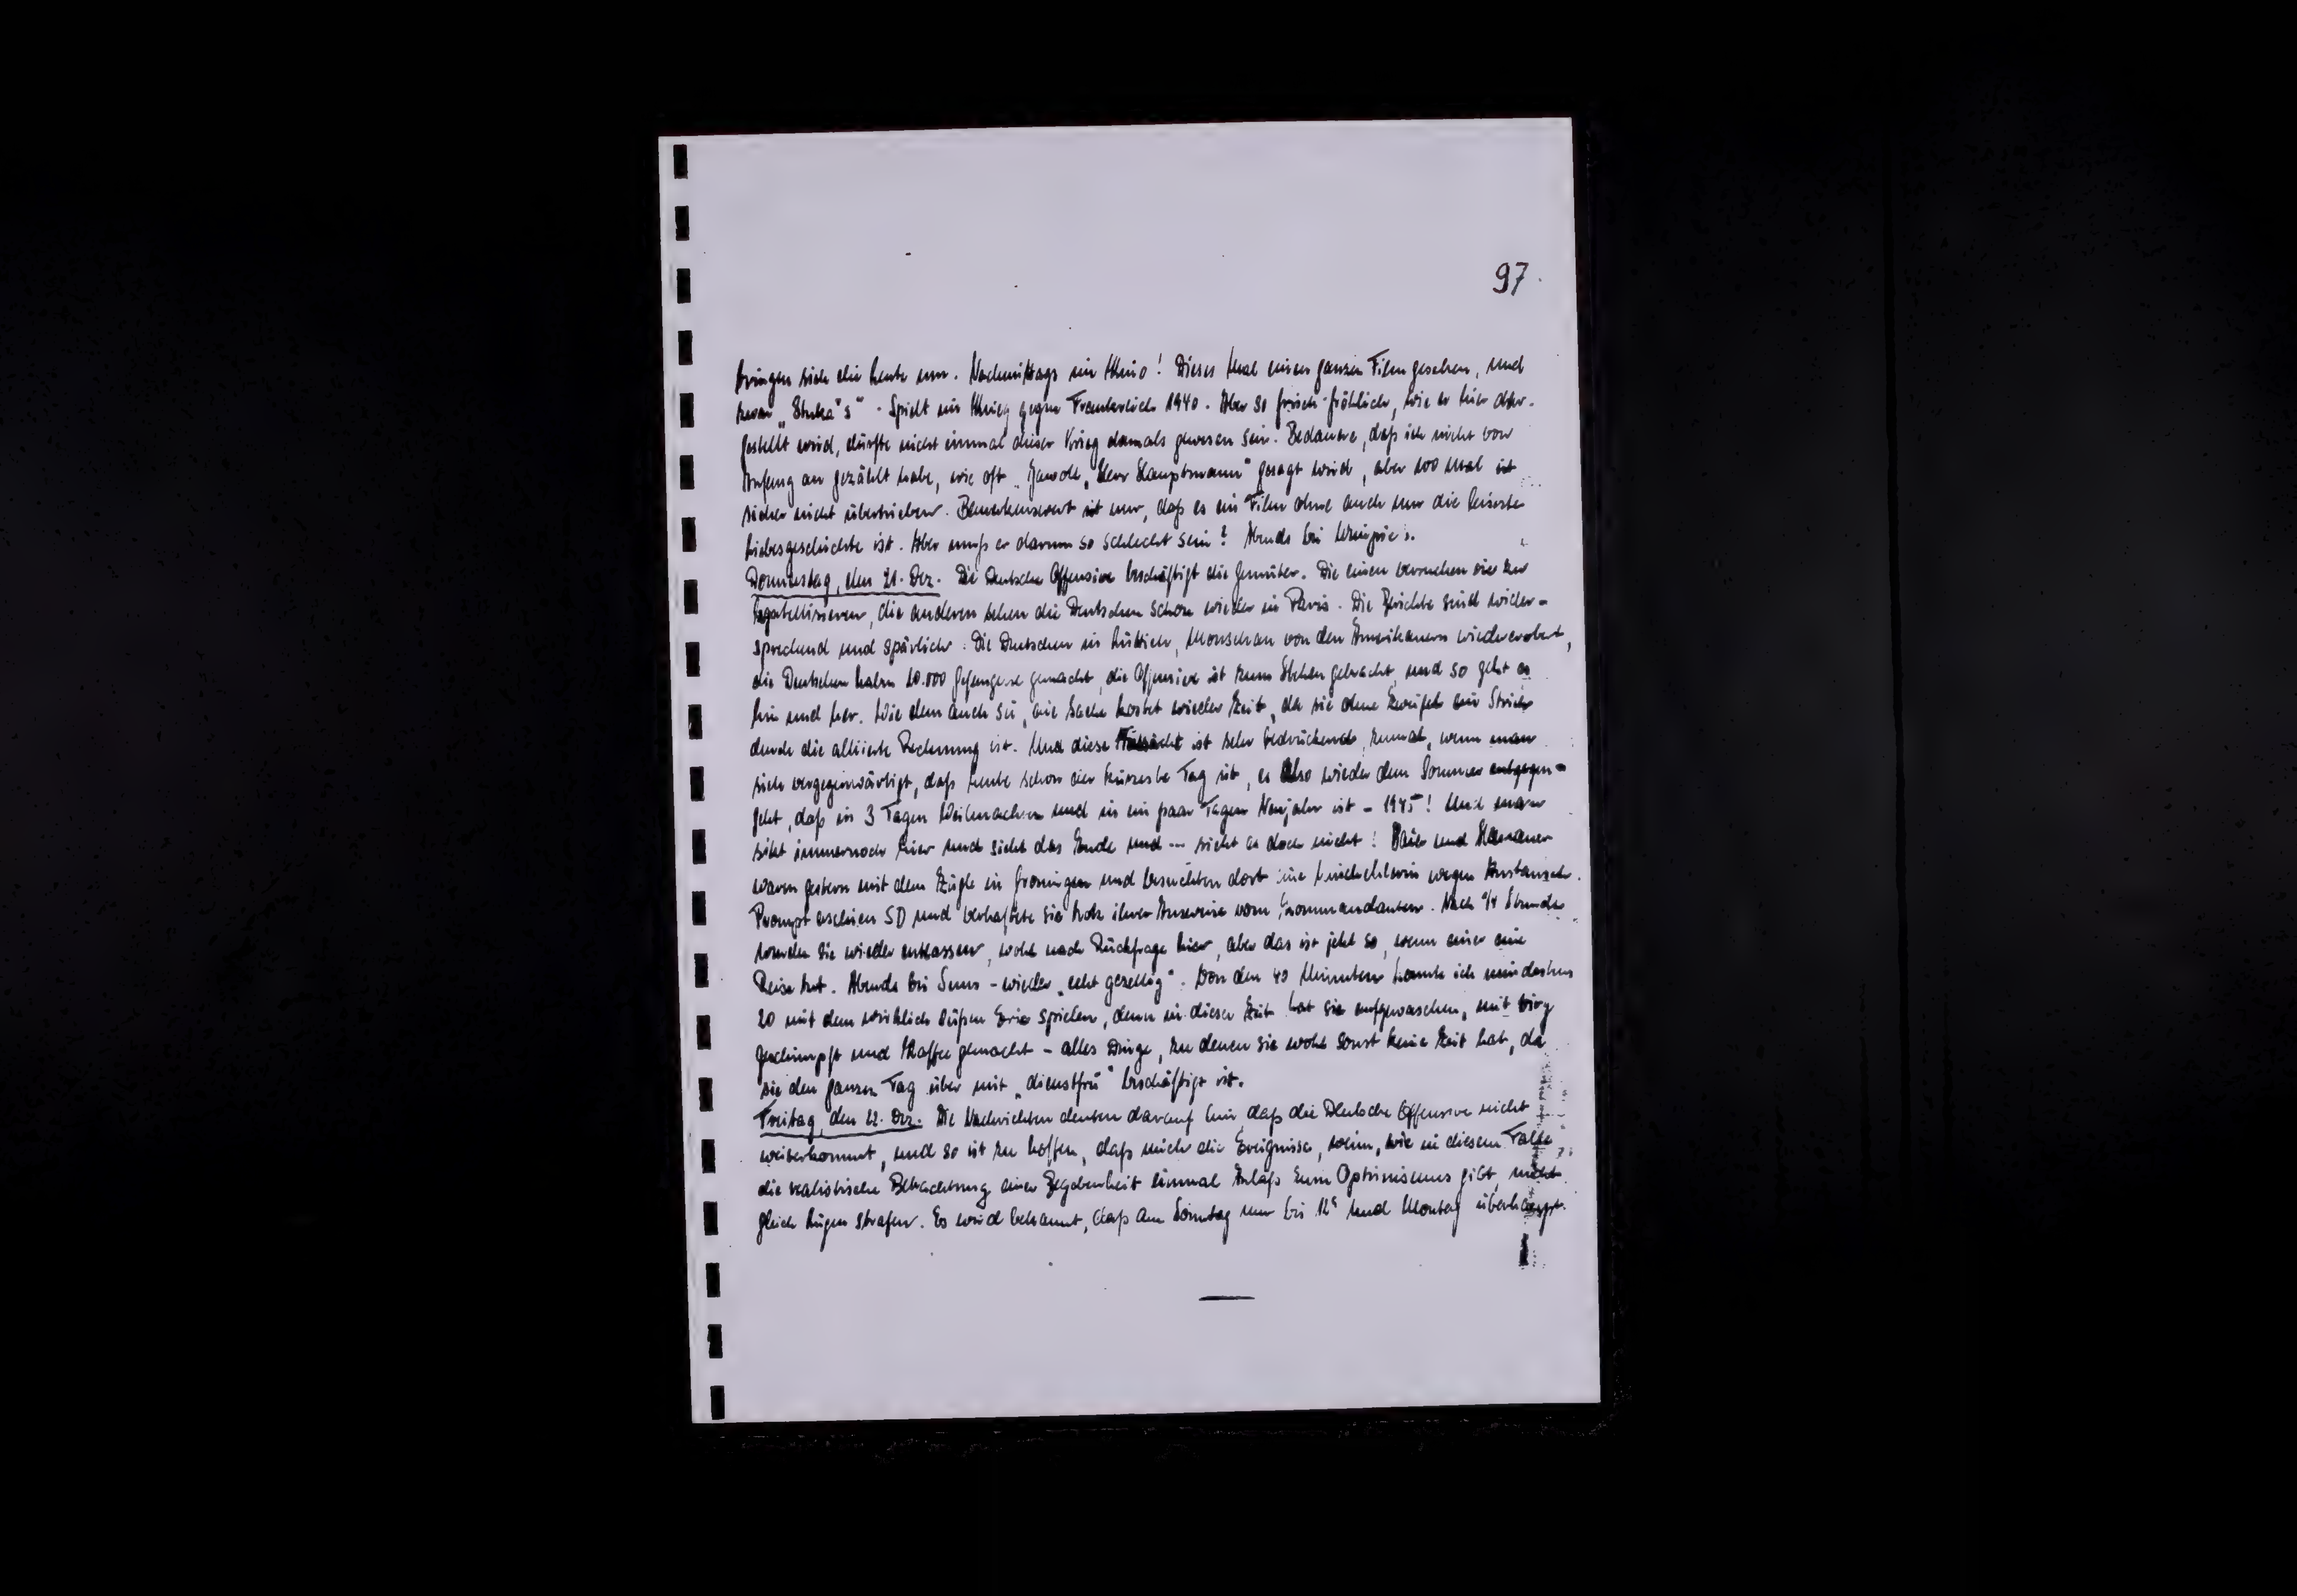 97.
bringen sich die Leute um. Nachmittags im Kino! Dieses Mal einen ganzen Film gesehen, und
zwar „Stuka's". Spielt im Krieg gegen Frankreich 1940. Aber so frisch-fröhlich, wie er hier dar-
gestellt wird, dürfte nicht einmal dieser Krieg damals gewesen sein. Bedauere, daß ich nicht von
Anfang an gezählt habe, wie oft „Jawohl, Herr Hauptmann" gesagt wird, aber 100 Mal ist
sicher nicht übertrieben. Bemerkenswert ist nur, daß es ein Film ohne auch nur die leiseste
Liebesgeschichte ist. Aber muß er darum so schlecht sein? Abends bei
Donnerstag, den 21. Dez. Die Deutsche Offensive beschäftigt die Gemüter. Die einen versuchen sie zu
bagatellisieren, die anderen sehen die Deutschen schon wieder in Paris. Die Berichte sind wider-
sprechend und spärlich. Die Deutschen in Lüttich, Monschau von den Amerikanern wiedererobert,
die Deutschen haben 10.000 Gefangene gemacht, die Offensive ist zum Stehen gebracht, und so geht es
hin und her. Wie dem auch sei, die Sache kostet wieder Zeit, da sie ohne Zweifel ein Strich
durch die alliierte Rechnung ist. Und diese Tatsache ist sehr bedrückend, zumal, wenn man
sich vergegenwärtigt, daß heute schon der kürzeste Tag ist, es also wieder dem Sommer entgegen-
geht, daß in 3 Tagen Weihnachten und in ein paar Tagen Neujahr ist - 1945! Und man
sitzt immernoch hier und sieht das Ende und --- sieht es doch nicht! und Hanauer
waren gestern mit dem Zügle in Groningen und besuchten dort eine wegen Austausch.
Prompt erschien SD und verhaftete sie trotz ihrer Ausweise vom Kommandanten. Nach ¾ Stunde
wurden sie wieder entlassen, wohl nach Rückfrage hier, aber das ist jetzt so, wenn einer eine
Reise tut. Abends bei - wieder „echt gezellig". Von den 40 Minuten konnte ich mindestens
20 mit dem wirklich süßen spielen, denn in dieser Zeit hat sie aufgewaschen, mit
geschimpft und Kaffee gemacht - alles Dinge, zu denen sie wohl sonst keine Zeit hat, da
sie den ganzen Tag über mit „dienstfrei" beschäftigt ist.
Freitag, den 22. Dez. Die Nachrichten deuten darauf hin, daß die Deutsche Offensive nicht
weiterkommt, und so ist zu hoffen, daß mich die Ereignisse, wenn, wie in diesem Falle,
die realistische Betrachtung einer Begebenheit einmal Anlaß zum Optimismus gibt, nicht
gleich Lügen strafen. Es wird bekannt, daß am Sonntag nur bis 12ʰ und Montag überhaupt